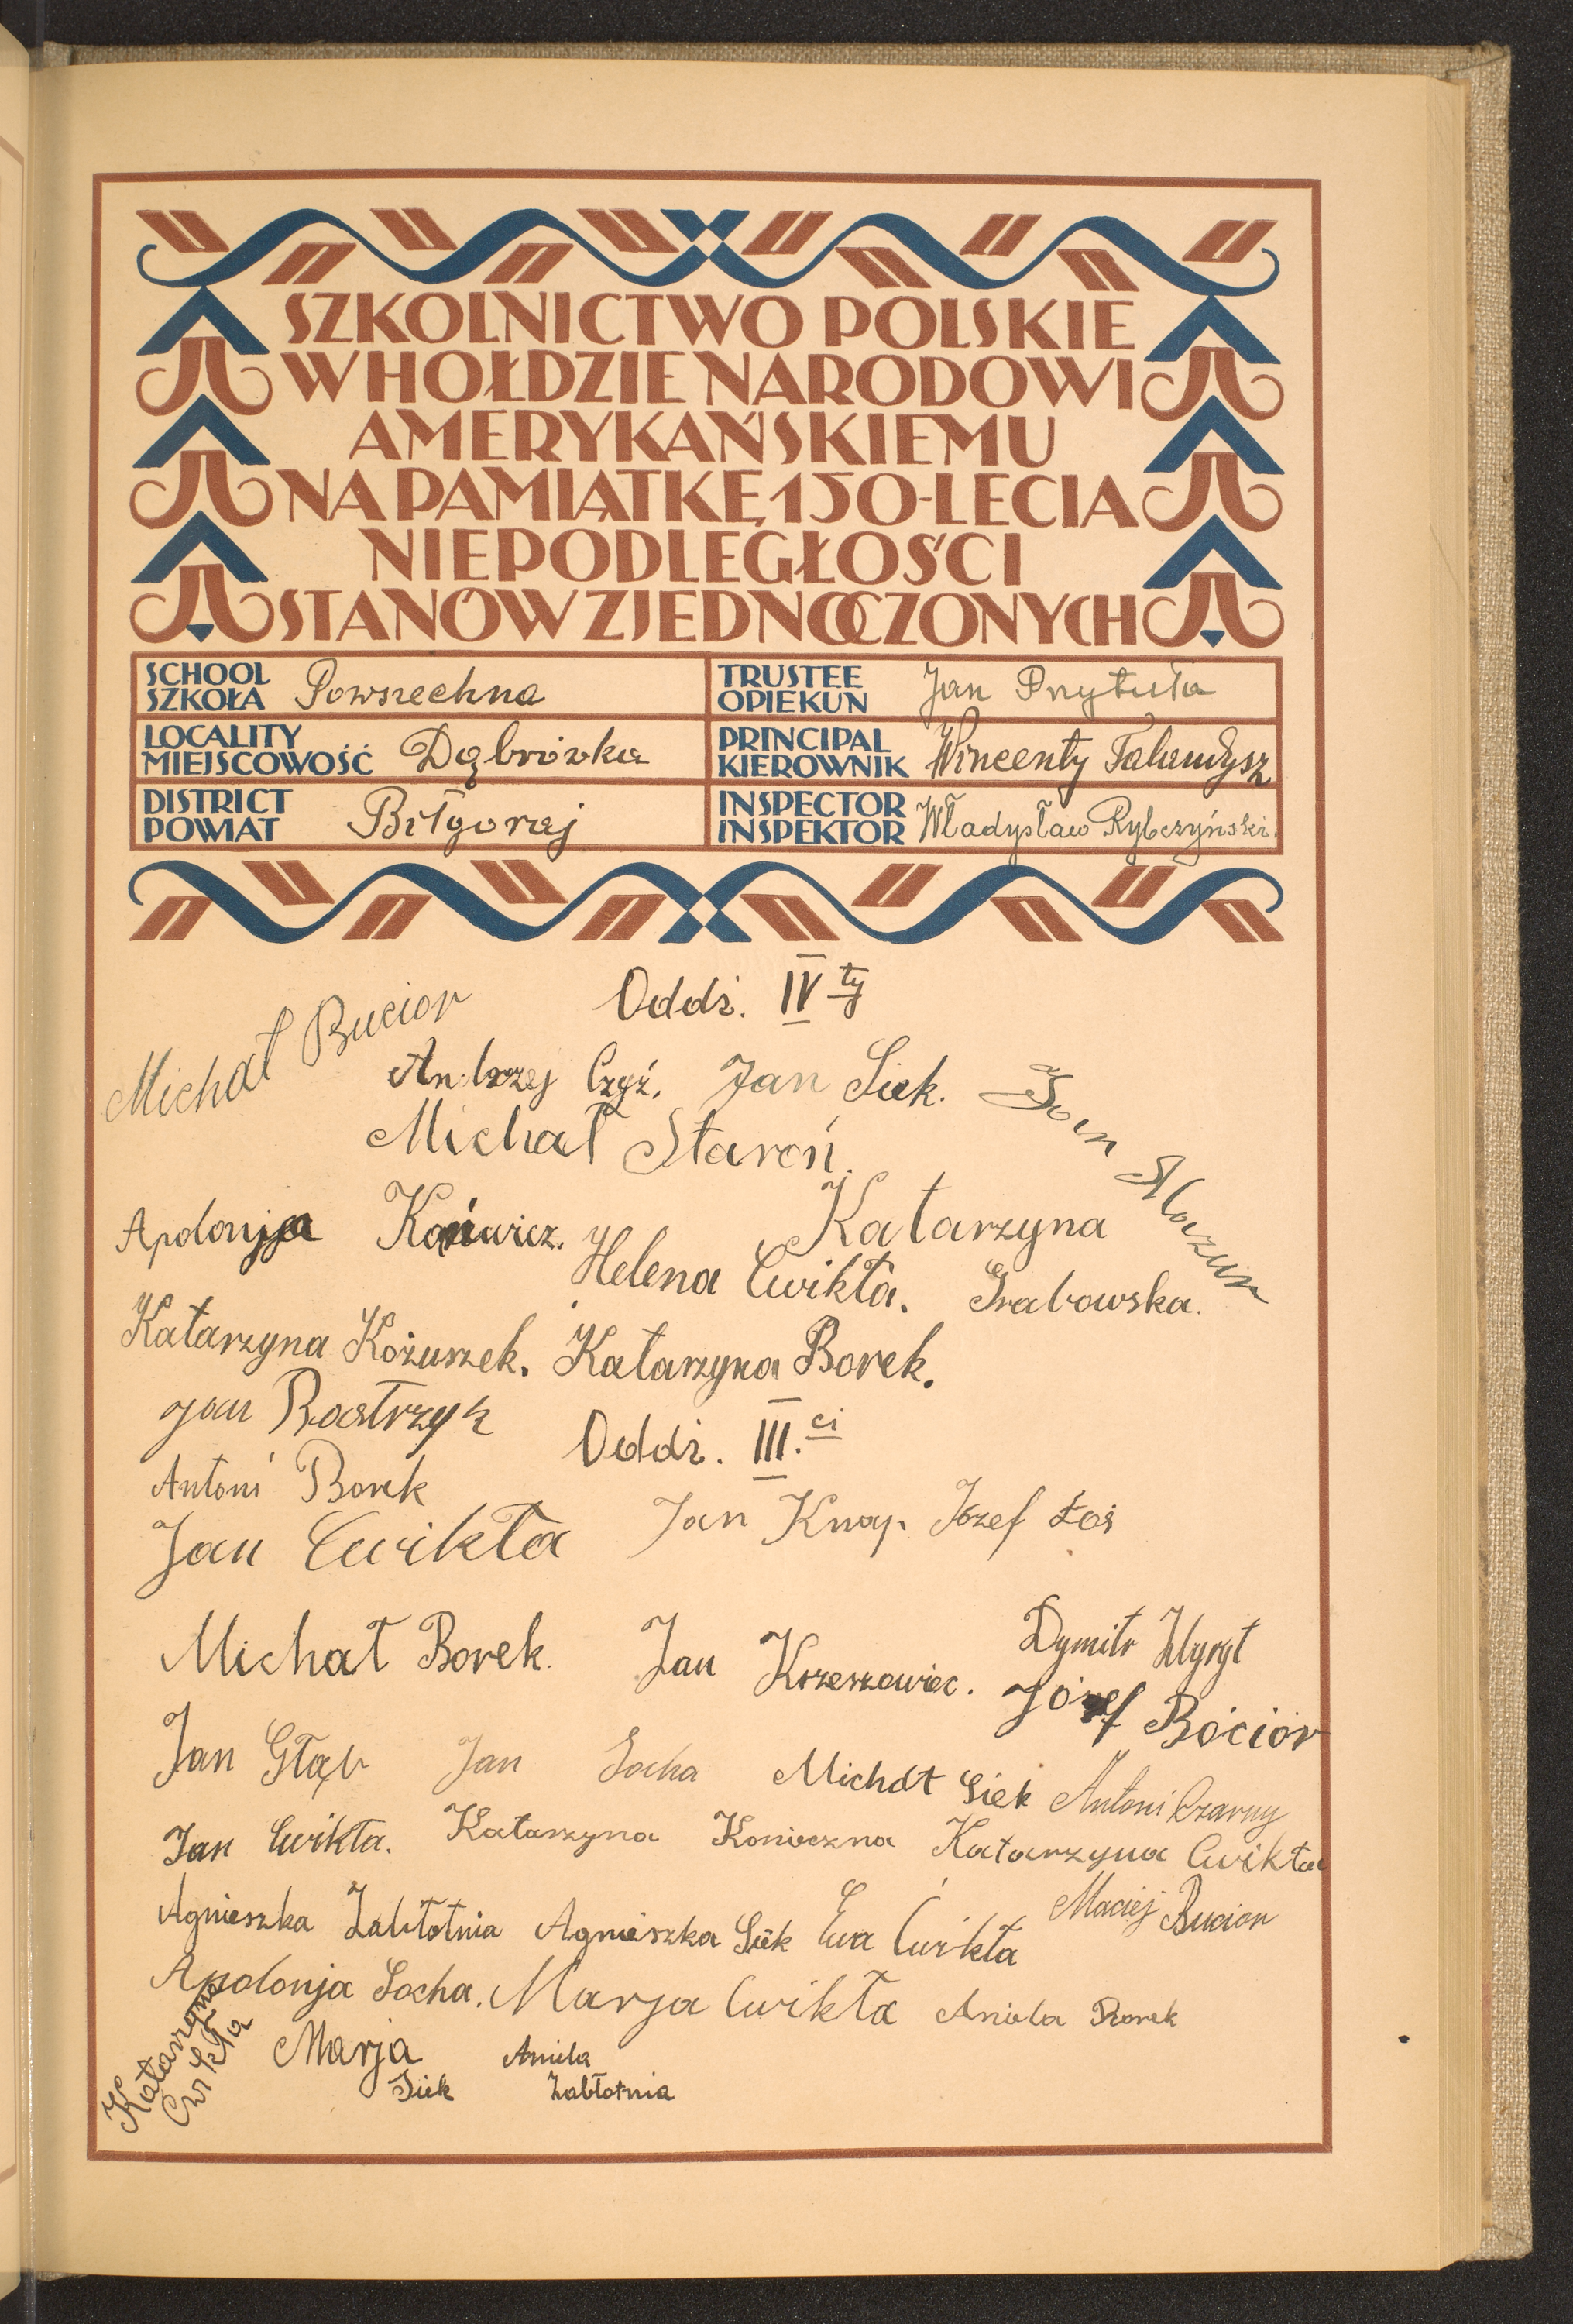 SZKOLNICTWO POLSKIE
W HOŁDZIE NARODOWI
AMERYKAŃSKIEMU
NA PAMIĄTKĘ 150-LECIA
NIEPODLEGŁOŚCI
STANÓW ZJEDNOCZONYCH
SCHOOL
SZKOŁA Powszechna
TRUSTEE
OPIEKUN Jan Przytuła
LOCALITY
MIEJSCOWOŚĆ Dąbrówka
PRINCIPAL
KIEROWNIK Wincenty Talandysz
DISTRICT
POWIAT Biłgoraj
INSPECTOR
INSPEKTOR Władysław Rybczyński.
Oddz. IV ty
Michał Bucior
Andrzej Czyż. Jan Siek. Jan Mazur
Michał Staroń.
Apolonja Kańwicz. Katarzyna
Helena Cwikła. Grabowska.
Katarzyna Kożuszek. Katarzyna Borek.
Jan Rostrzyk
Oddz. III. ci
Antoni Borek
Jan Cwikła Jan Knap. Józef Łoś
Michał Borek. Jan Krzeszowiec. Dymitr
Józef Bócior
Jan Głąb Jan Socha Michał Siek Antoni Czarny
Jan Cwikła. Katarzyna Konieczna Katarzyna Cwikła
Agnieszka Zabłotnia Agnieszka Siek Ewa Ćwikła Maciej Bucior
Apolonja Socha. Marja Cwikła Aniela Borek
Katarzyna
Cwikła
Marja
Siek
Aniela
Zabłotnia